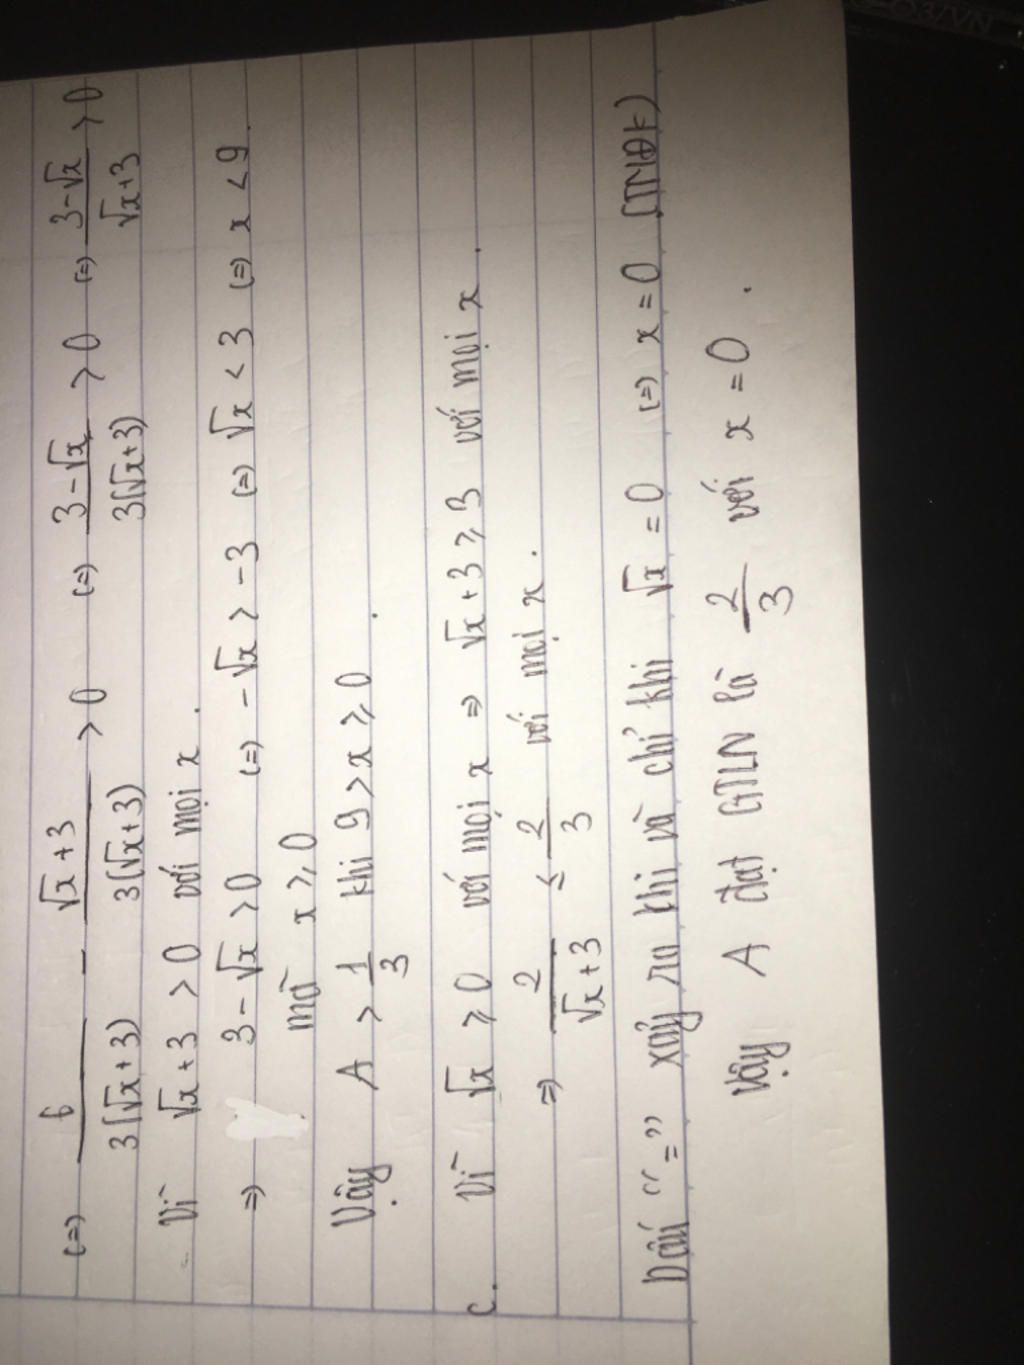 (=) 6/(3(√x+3)) - (√x+3)/(3(√x+3)) > 0 (=) (3-√x)/(3(√x+3)) > 0 (=) (3-√x)/(√x+3) > 0
Vì √x+3 > 0 với mọi x.
=> 3-√x > 0 (=) -√x > -3 (=) √x < 3 (=) x < 9.
mà x ⩾ 0
Vậy A > 1/3 khi 9 > x ⩾ 0.
c. Vì √x ⩾ 0 với mọi x => √x+3 ⩾ 3 với mọi x.
=> 2/(√x+3) ≤ 2/3 với mọi x.
Dấu "=" xảy ra khi và chỉ khi √x = 0 (=) x = 0 (TMĐK)
Vậy A đạt GTLN là 2/3 với x = 0.